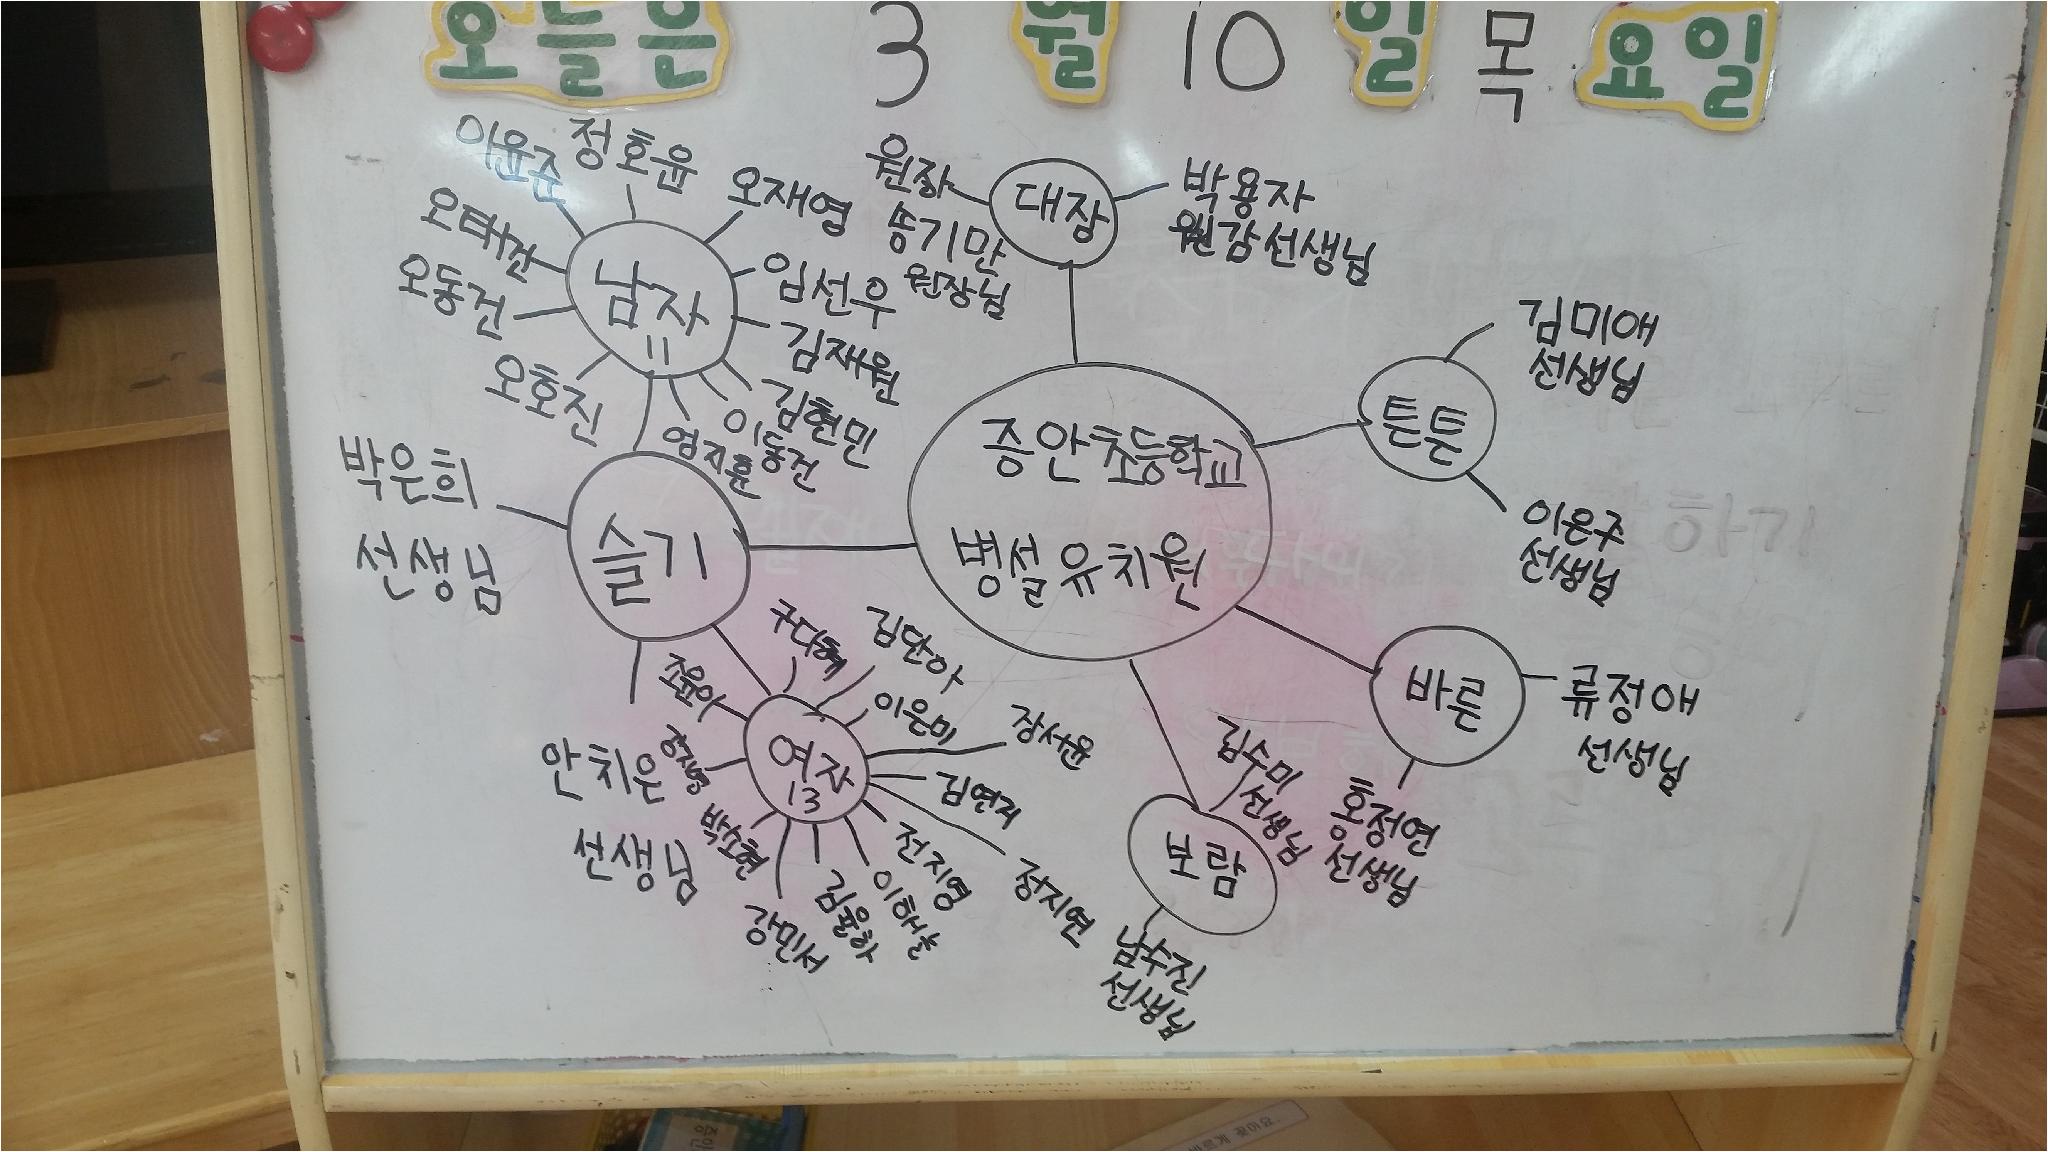 오늘은 3월 10일 목요일
이윤준
정호윤
오재영
오태건
오동건
오호진
임선우
김재원
김현민
이동건
엄지훈
남자
11
원장
뜽기만
원장님
대장
박용자
원감선생님
김미애
선생님
튼튼
이은주
선생님
증안초등학교
병설유치원
박은희
선생님
슬기
안치은
선생님
구다혜
김단아
조윤아
이은미
장서윤
강지영
여자
13
김연지
박소현
전지영
정지연
이해솔
김윤하
강민서
바른
류정애
선생님
홍정연
선생님
김수미
선생님
보람
남수진
선생님
하기